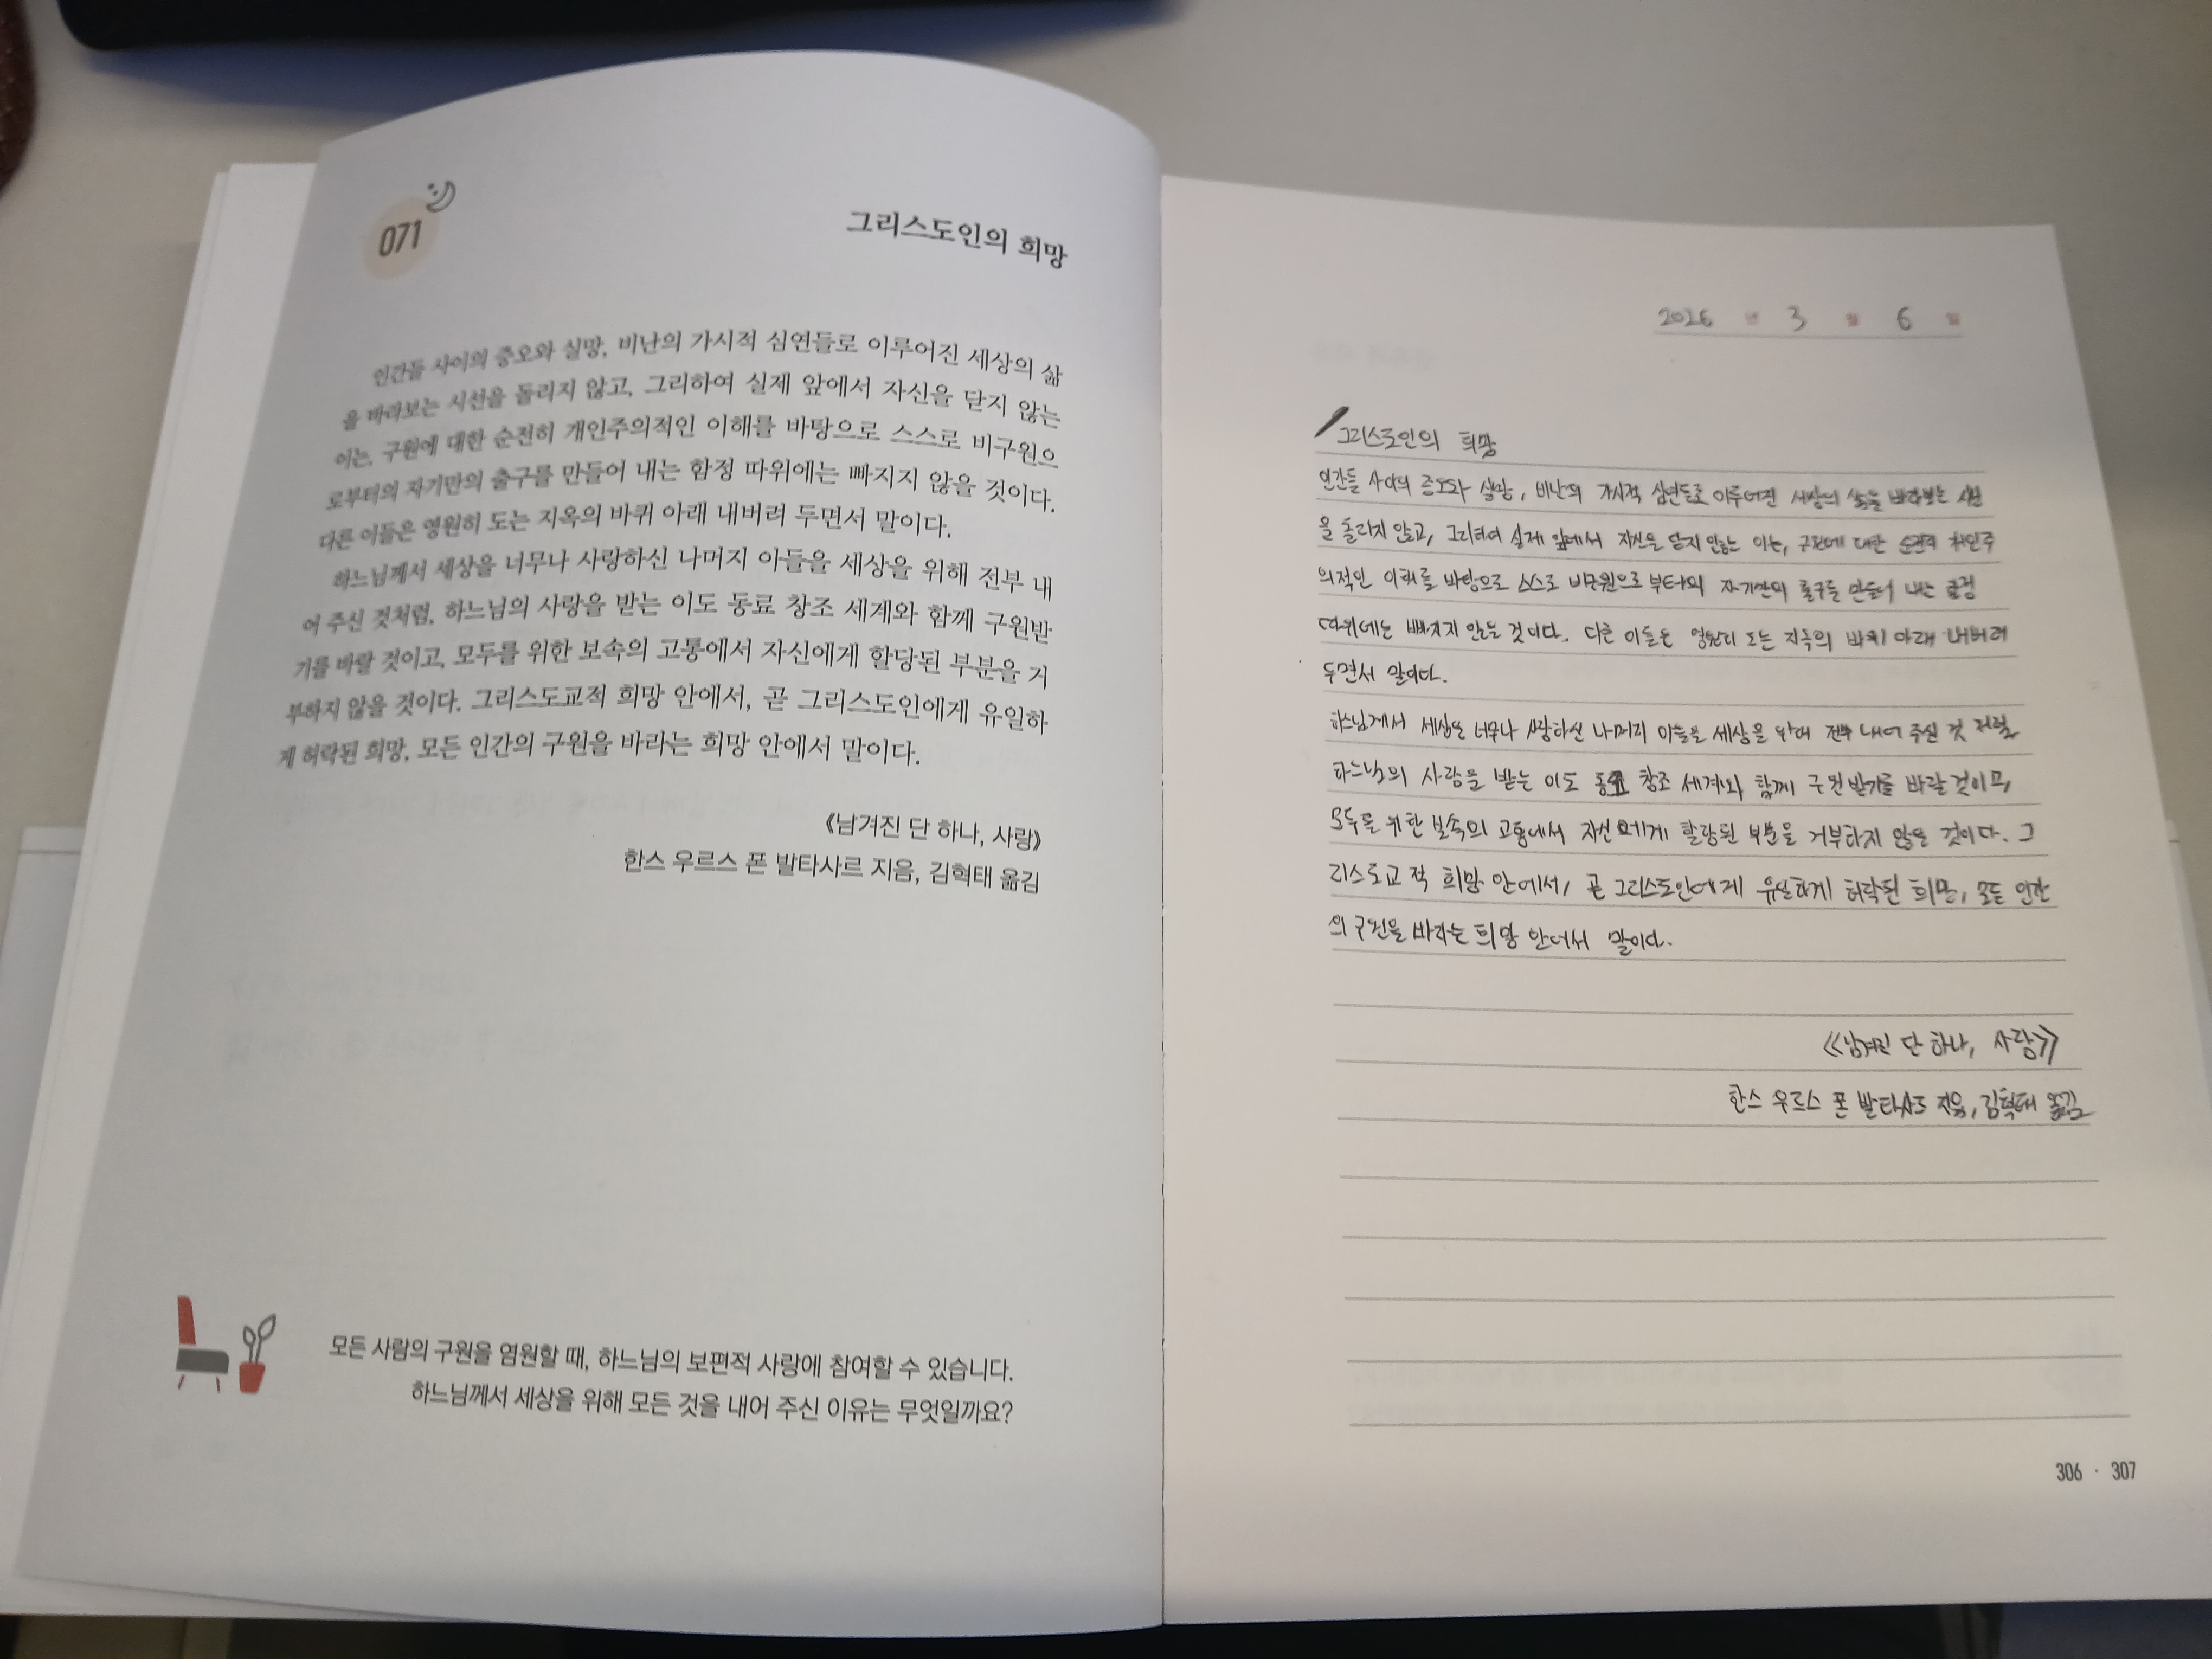 071
그리스도인의 희망
인간들 사이의 증오와 실망, 비난의 가시적 심연들로 이루어진 세상의 삶
을 바라보는 시선을 돌리지 않고, 그리하여 실제 앞에서 자신을 닫지 않는
이는, 구원에 대한 순전히 개인주의적인 이해를 바탕으로 스스로 비구원으
로부터의 자기만의 출구를 만들어 내는 함정 따위에는 빠지지 않을 것이다.
다른 이들은 영원히 도는 지옥의 바퀴 아래 내버려 두면서 말이다.
하느님께서 세상을 너무나 사랑하신 나머지 아들을 세상을 위해 전부 내
어 주신 것처럼, 하느님의 사랑을 받는 이도 동료 창조 세계와 함께 구원받
기를 바랄 것이고, 모두를 위한 보속의 고통에서 자신에게 할당된 부분을 거
부하지 않을 것이다. 그리스도교적 희망 안에서, 곧 그리스도인에게 유일하
게 허락된 희망, 모든 인간의 구원을 바라는 희망 안에서 말이다.
《남겨진 단 하나, 사랑》
한스 우르스 폰 발타사르 지음, 김혁태 옮김
모든 사람의 구원을 염원할 때, 하느님의 보편적 사랑에 참여할 수 있습니다.
하느님께서 세상을 위해 모든 것을 내어 주신 이유는 무엇일까요?
2026 년 3 월 6 일
그리스도인의 희망
인간들 사이의 증오와 실망, 비난의 가시적 심연들로 이루어진 세상의 삶을 바라보는 시선
을 돌리지 않고, 그리하여 실제 앞에서 자신을 닫지 않는 이는, 구원에 대한 순전히 개인주
의적인 이해를 바탕으로 스스로 비구원으로부터의 자기만의 출구를 만들어 내는 함정
따위에는 빠지지 않을 것이다. 다른 이들은 영원히 도는 지옥의 바퀴 아래 내버려
두면서 말이다.
하느님께서 세상을 너무나 사랑하신 나머지 아들을 세상을 위해 전부 내어 주신 것 처럼
하느님의 사랑을 받는 이도 동료 창조 세계와 함께 구원받기를 바랄 것이고,
모두를 위한 보속의 고통에서 자신에게 할당된 부분을 거부하지 않을 것이다. 그
리스도교적 희망 안에서, 곧 그리스도인에게 유일하게 허락된 희망, 모든 인간
의 구원을 바라는 희망 안에서 말이다.
《남겨진 단 하나, 사랑》
한스 우르스 폰 발타사르 지음, 김혁태 옮김
306 · 307